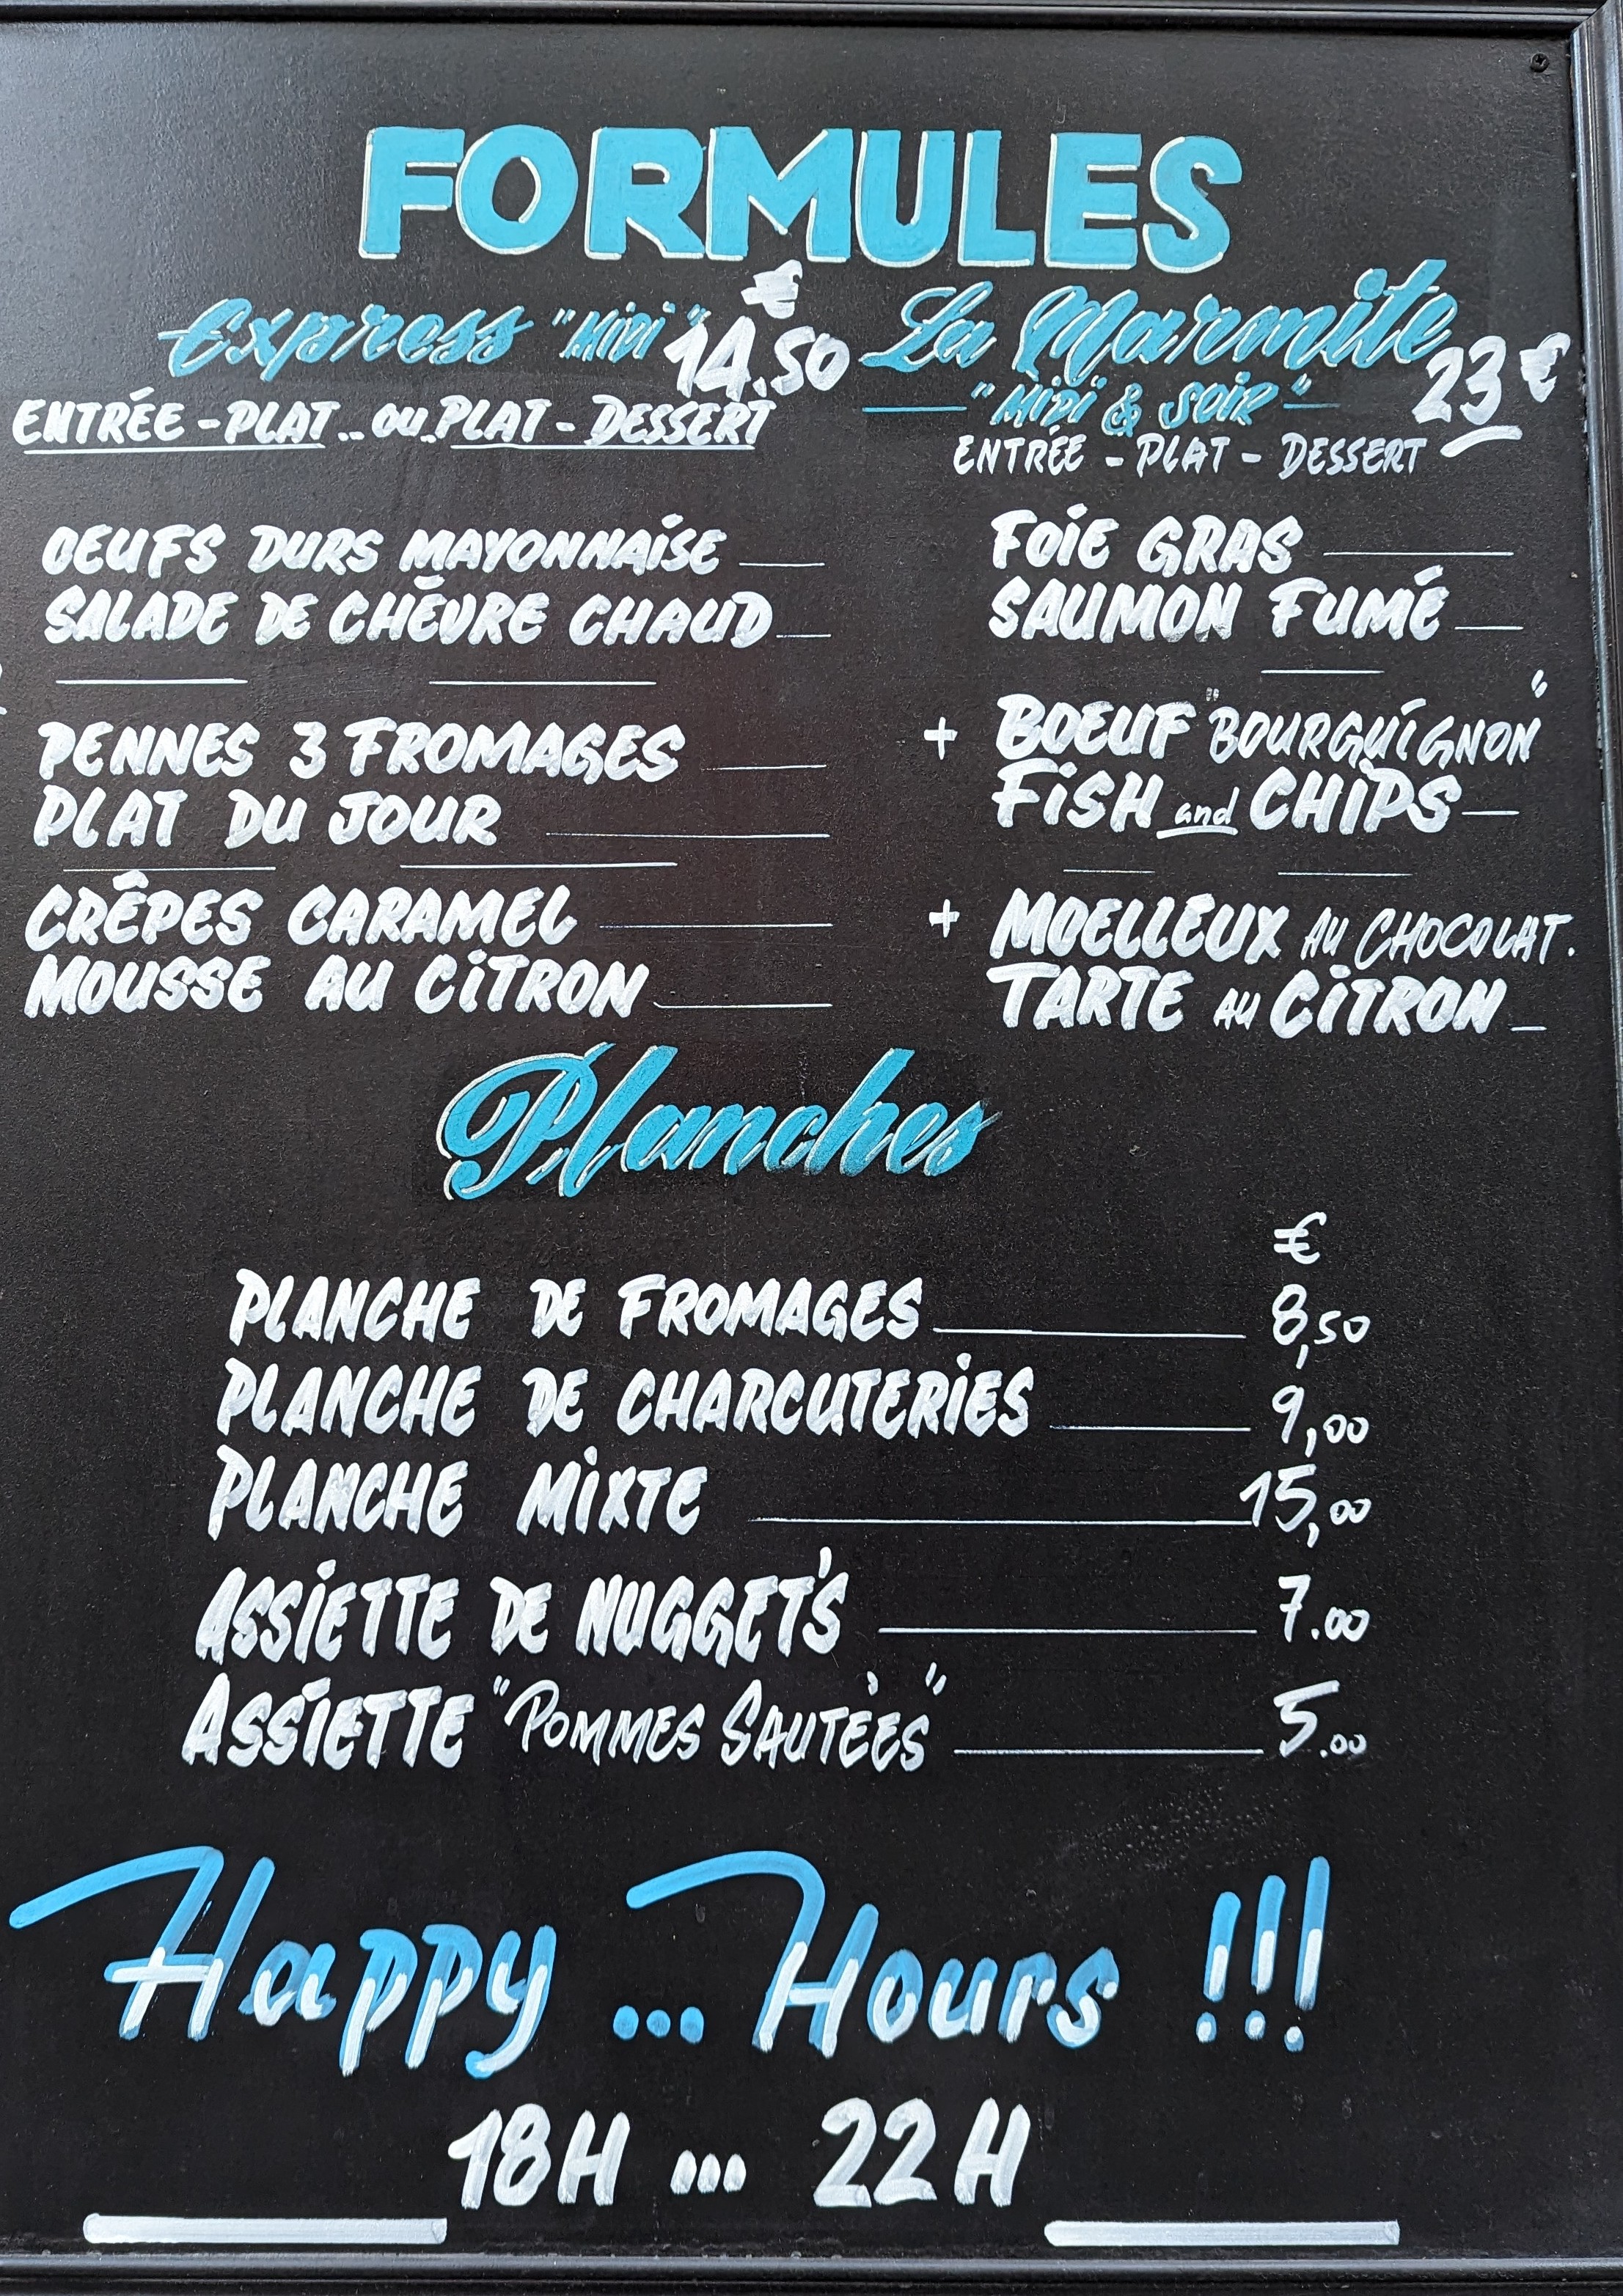 FORMULES
Express "Midi" 14.50 €
ENTRÉE - PLAT .. ou. PLAT - DESSERT
OEUFS DURS MAYONNAISE
SALADE DE CHÈVRE CHAUD
PENNES 3 FROMAGES
PLAT DU JOUR
CRÊPES CARAMEL
MOUSSE AU CITRON
La Marmite 23 €
"Midi & SOIR"
ENTRÉE - PLAT - DESSERT
FOIE GRAS
SAUMON FUMÉ
+ BOEUF "BOURGUIGNON"
FISH and CHIPS
+ MOELLEUX AU CHOCOLAT.
TARTE AU CITRON
Planches
€
PLANCHE DE FROMAGES 8,50
PLANCHE DE CHARCUTERIES 9,00
PLANCHE MIXTE 15,00
ASSIETTE DE NUGGET'S 7.00
ASSIETTE "POMMES SAUTÈES" 5.00
Happy ... Hours !!!
18H ... 22H